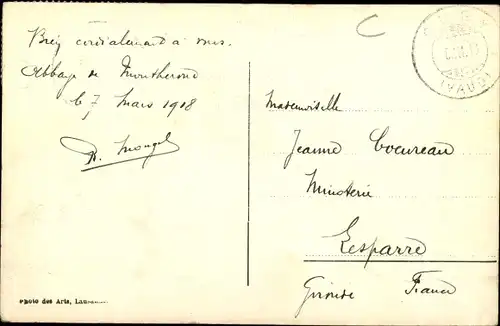 Bien cordialement à vous.
Abbaye de Montheron
le 7 Mars 1918
Mademoiselle
Jeanne Cocureau
Minoterie
Lesparre
Gironde France
(VAUD)
Photo des Arts, Lausanne